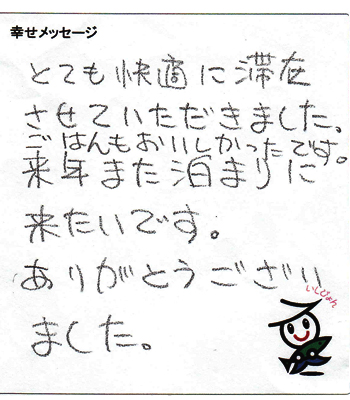 幸せメッセージ
とても快適に滞在
させていただきました。
ごはんもおいしかったです。
来年また泊まりに
来たいです。
ありがとうござい
ました。
いしぴょん